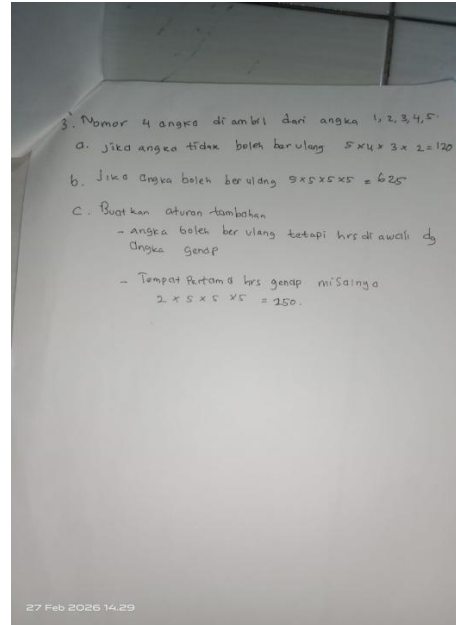 3. Nomor 4 angka di ambil dari angka 1, 2, 3, 4, 5.
a. Jika angka tidak boleh berulang 5 x 4 x 3 x 2 = 120
b. Jika angka boleh berulang 5 x 5 x 5 x 5 = 625
c. Buatkan aturan tambahan
- angka boleh ber ulang tetapi hrs di awali dg
angka genap
- Tempat Pertama hrs genap misalnya
2 x 5 x 5 x 5 = 250.
27 Feb 2026 14.29